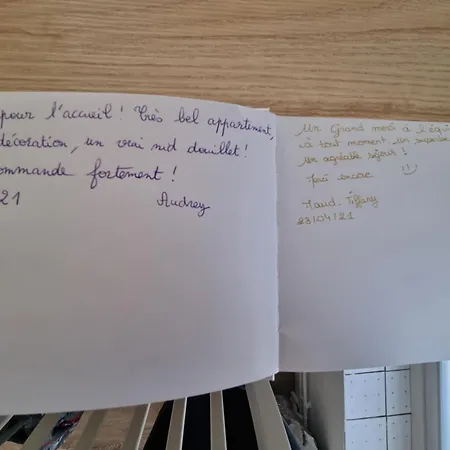 pour l'accueil! Très bel appartement,
décoration, un vrai nid douillet!
ommande fortement!
21 Audrey
Un Grand merci à l'équi
à tout moment un
un agréable séjour!
encore
Maud. Tiffany
23/04/21